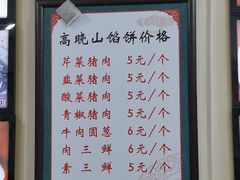 高晓山馅饼价格
芹菜猪肉 5元/个
韭菜猪肉 5元/个
酸菜猪肉 5元/个
青椒猪肉 5元/个
牛肉圆葱 6元/个
肉三鲜 6元/个
素三鲜 5元/个